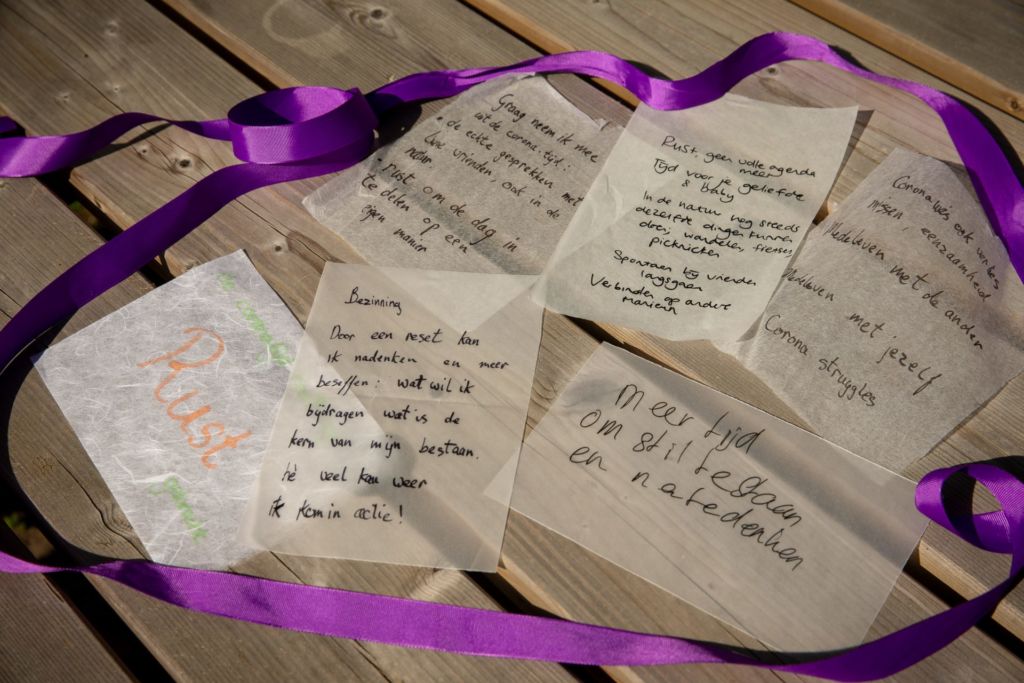 Graag neem ik mee
uit de corona-tijd:
- de echte gesprekken met
vrienden, ook in de
natuur
- Rust om de dag in
te delen op een
eigen manier
Rust, geen volle agenda
meer
Tijd voor je geliefde
& baby
In de natuur nog steeds
dezelfde dingen kunnen
doen, wandelen, fietsen,
picknicken
Spontaan bij vrienden
langsgaan
Verbinden op andere
manieren
Corona was ook verlies
missen, eenzaamheid
Medeleven met de ander
Medeleven met jezelf
Corona struggles
de corona
Rust
Bezinning
Door een reset kan
ik nadenken en meer
beseffen: wat wil ik
bijdragen wat is de
kern van mijn bestaan.
hè veel kan weer
Ik kom in actie!
Meer tijd
om stil te staan
en na te denken